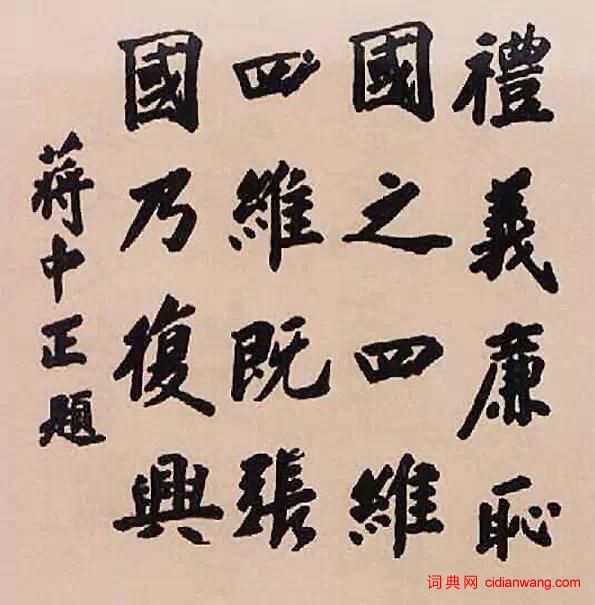 禮義廉恥
國之四維
四維既張
國乃復興
蔣中正題
词典网 cidianwang.com